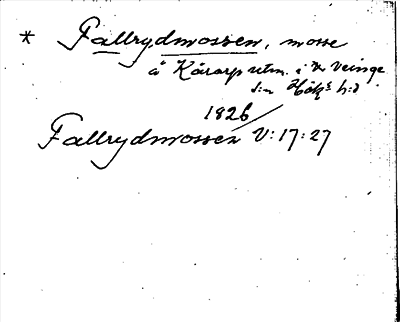 * Fallrydmossen, mosse
å Kårarp utm. i Ö. Veinge
s:n Höks h:d
1826
Fallrydmossen V:17:27